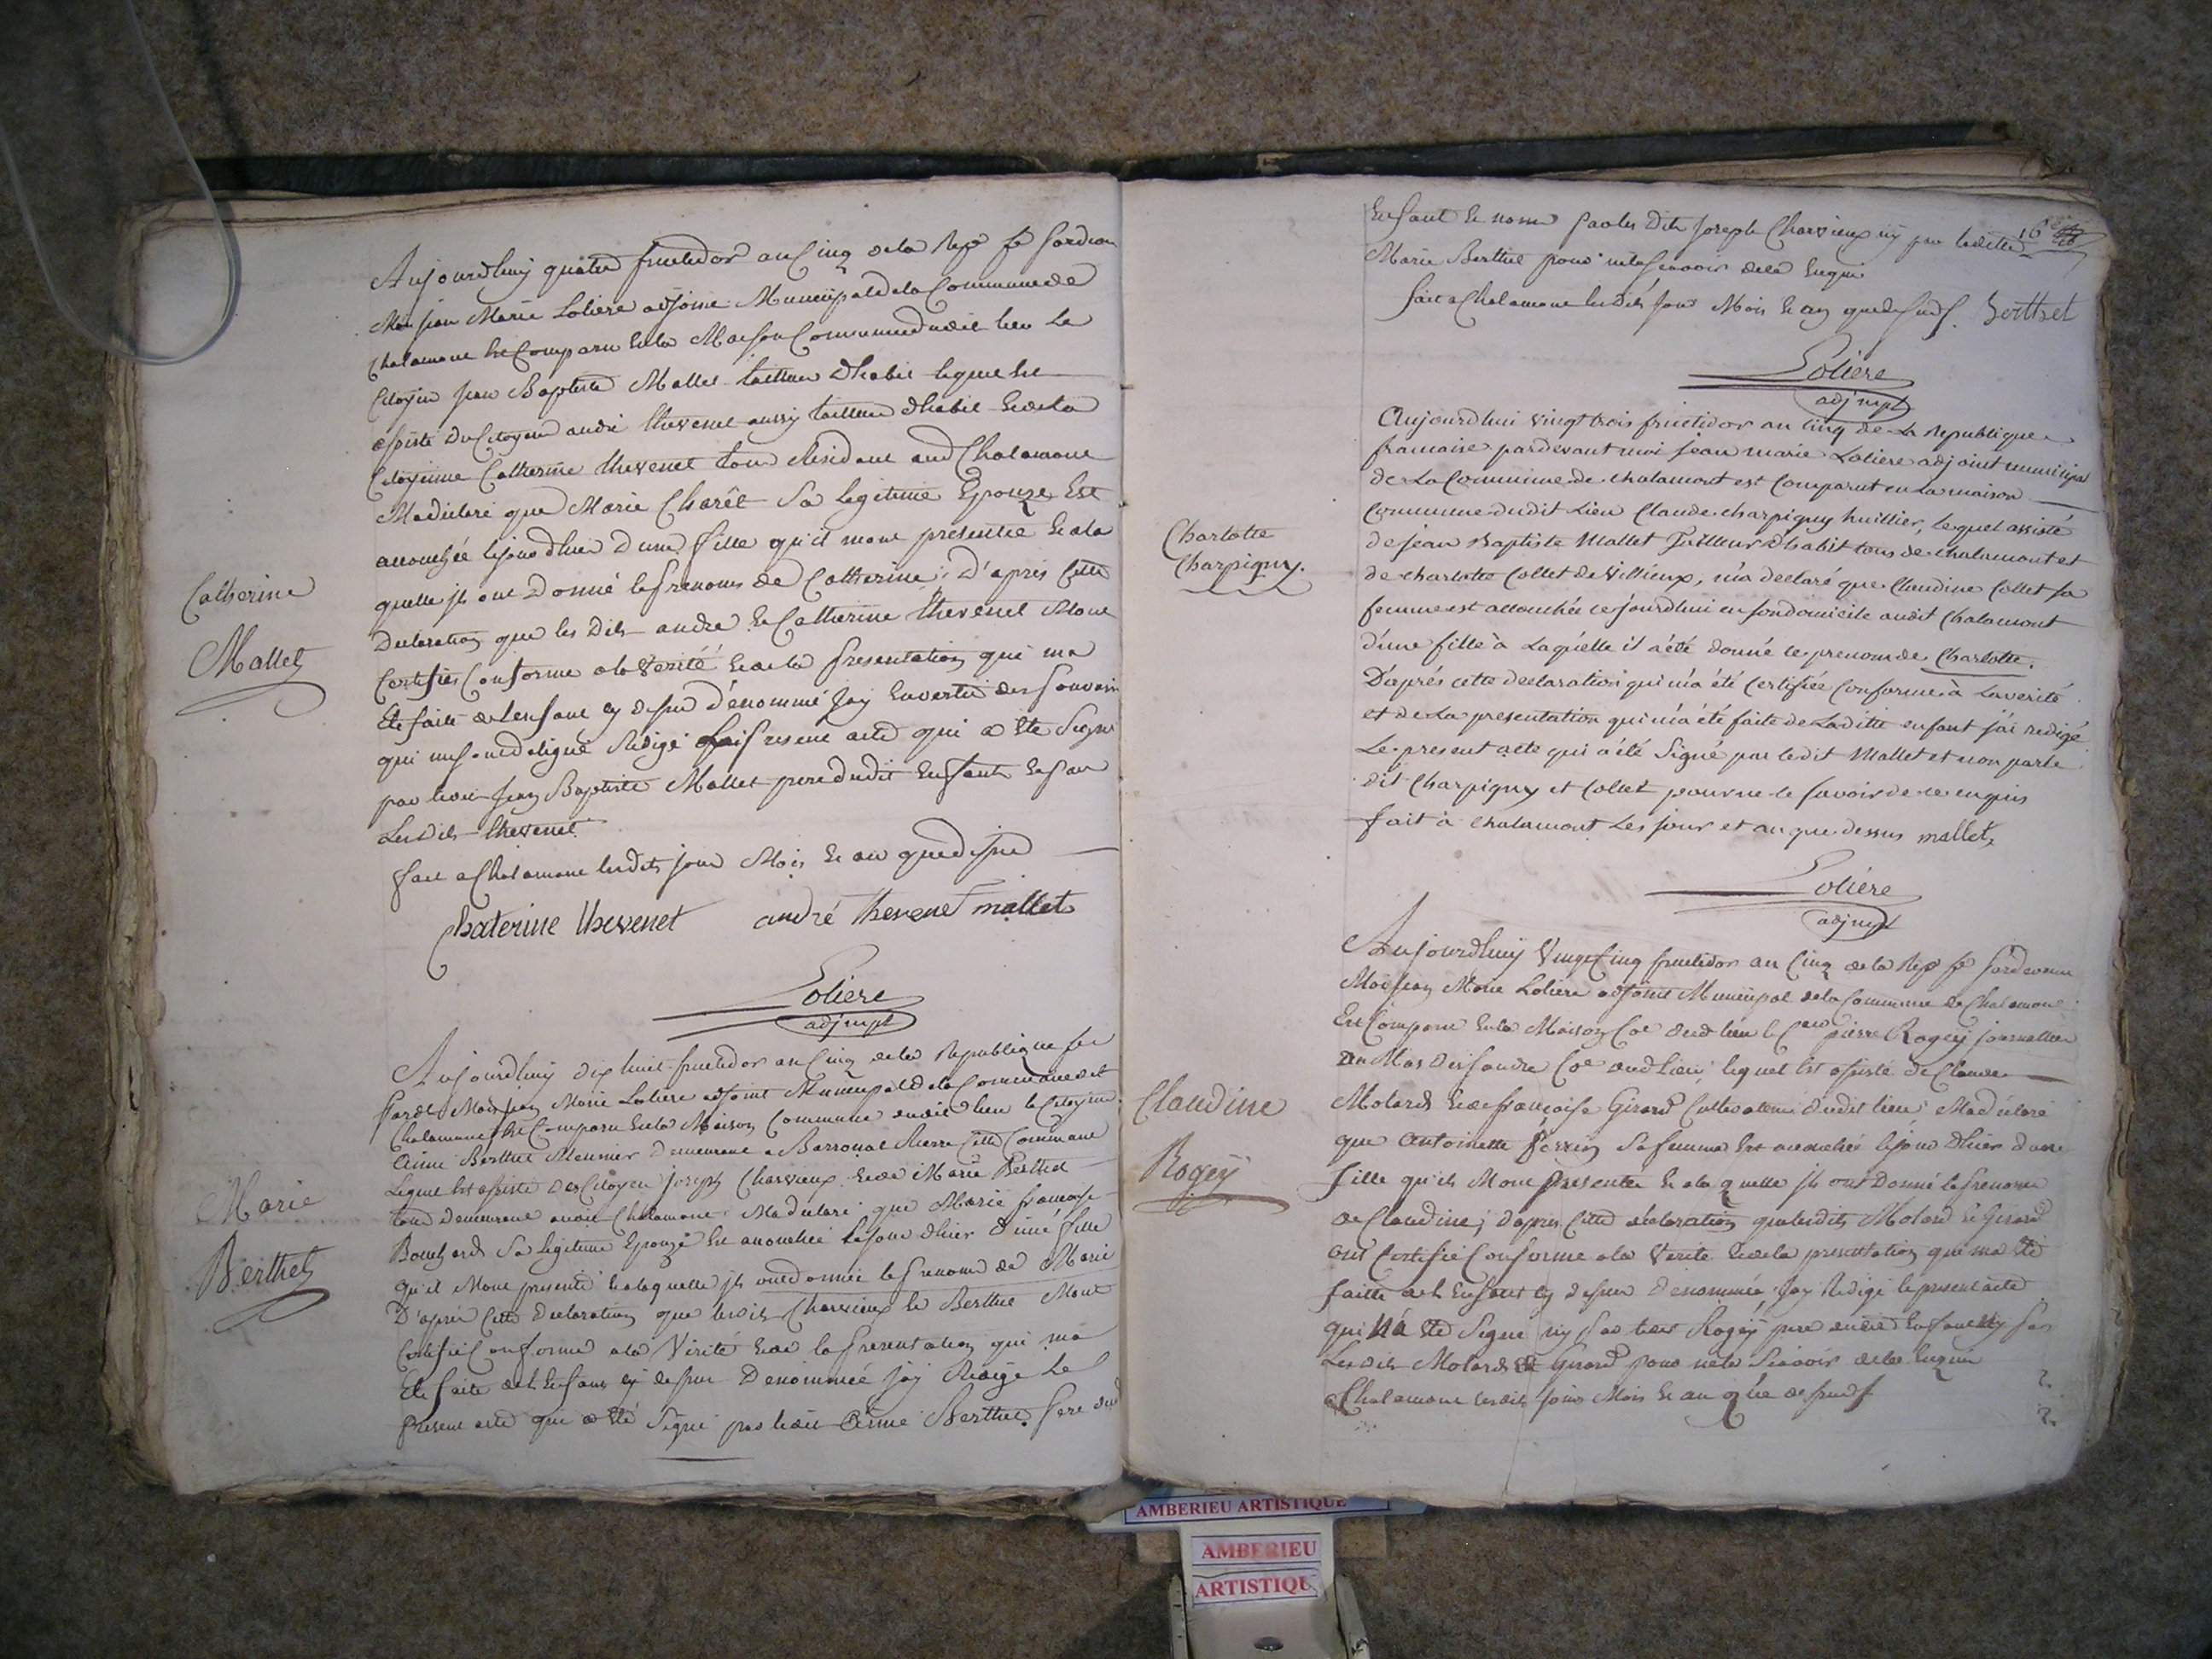 Aujourdhuy quatre fructidor an Cinq dela Rep fe pardevan
Moi jean Marie Loliere adjoint Municipal dela Commune de
Chalamont est Comparu en la Maison Commune dudit lieu Le
Citoyen jean Baptiste Mallet tailleur dhabit lequel est
assisté du Citoyen andré thevenet aussy tailleur dhabit et de la
Citoyenne Catherine thevenet tous Residant aud Chalamont
Ma déclaré que Marie Charêt Sa legitime Epouze Est
accouchée lejourdhier d'une fille qu'il mont présentée et a la
quelle jls ont Donné le prenoms de Catherine; D'après Cette
Declaration que les Dits andre et Catherine thevenet Mont
Certifiés Conforme a la Verité et de la presentation qui ma
Eté faite de lenfant cy dessus dénommé Jay En vertu des pouvoirs
qui me sont délégué Rédigé le présent acte qui a été Signé
par ledit Jean Baptiste Mallet pere dudit Enfant et par
Lesdits thevenet
fait a Chalamont lesdits jour Mois et an que dessus
Catherine
Mallet
Chaterine thevenet andré thevenet mallet
Loliere
adj mpl
Aujourdhuy dix huit fructidor an Cinq de la Republique fse
Pardt Moi jean Marie Loliere adjoint Municipal de la Commune de
Chalamont est Comparu en la Maison Commune dudit lieu le Citoyen
Aimé Berthet Meunier Demeurant a Cette Commune
Lequel est assisté des Citoyen joseph Charvieux et de Marie Berthet
tous Demeurant audit Chalamont Ma déclaré que Marie françoise
Bouchard Sa legitime Epouzé est accouchée lejour dhier d'une fille
qu'il Mont presenté et a laquelle jls ont donnée le prenoms de Marie
D'après Cette Declaration que lesdits Charvieux et Berthet Mont
Certifié Conforme a la Vérité et de la presentation qui ma
Eté faite de lEnfant cy dessus Dénommée jay Redigé Le
Présent acte qui a été Signé par ledit Aimé Berthet Pere dud
Marie
Berthet
16
Enfant et nom par les Dits Joseph Charvieux ny par laditte
Marie Berthet pour ne le scavoir de ce Enquis
fait a Chalamont lesdits jour Mois et an que dessus. Berthet
Loliere
adj mpl
Aujourdhui vingt trois fructidor an cinq de la republique
francaise pardevant moi jean marie Loliere adjoint municipal
de la Commune de chalamont est Comparut en la maison
Commune dudit Lieu Claude charpigny huillier, lequel assisté
de jean Baptiste Mallet Tailleur dhabit tous de chalamont et
de charlotte Collet de Villieux, m'a declaré que Claudine Collet sa
femme est accouchée cejourdhui en son domicile audit Chalamont
d'une fille à Laquelle il a été donné le prenom de Charlotte.
D'aprés cette declaration qui m'a été Certifiée Conforme à La verité
et de La presentation qui m'a été faite de Laditte enfant j'ai redigé
Le present acte qui a été Signé par ledit Mallet et non par le
dit Charpigny et Collet pour ne le savoir de ce enquis
fait à chalamont Les jour et an que dessus mallet
Charlotte
Charpigny.
Loliere
adj mpl
Aujourdhuy Vingt Cinq fructidor an Cinq de la Rep fe Pardevant
Moi jean Marie Loliere adjoint Municipal de la Commune de Chalamont
Est Comparu en la Maison Coe dud lieu le Cen pierre Rogey journallier
Coe dud Lieu; lequel est assisté de Claude
Molard et de françoise Girard Cultivateur dudit lieu; Ma déclaré
que Antoinette Perrin Sa femme est accouchée lejour dhier d'une
fille qu'ils Mont Présentée et a la quelle jls ont Donné le prenom
de Claudine; d'apres Cette déclaration que lesdits Molard et Girard
ont Certifié Conforme a la Verité et de la presentation qui ma été
faitte de lEnfant cy dessus denommée jay Redigé le present acte
qui Na été Signé ny par ledit Rogey pere dudit Enfant Ny par
Lesdits Molard et Girard pour ne le Scavoir de ce Enquis
a Chalamont lesdits jour Mois et an que dessus
Claudine
Rogey
AMBERIEU ARTISTIQUE
AMBERIEU
ARTISTIQUE